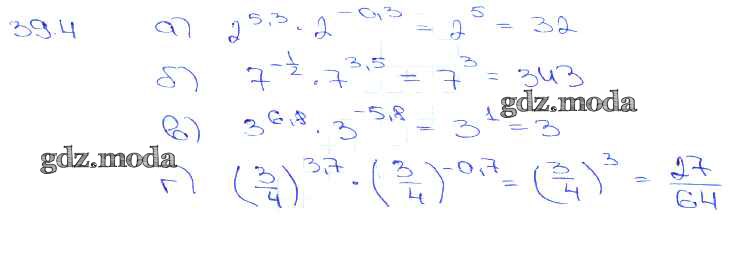 39.4 а) 2^5,3 · 2^-0,3 = 2^5 = 32
б) 7^-1/2 · 7^3,5 = 7^3 = 343
gdz.moda
в) 3^6,8 · 3^-5,8 = 3^1 = 3
gdz.moda
г) (3/4)^3,7 · (3/4)^-0,7 = (3/4)^3 = 27/64